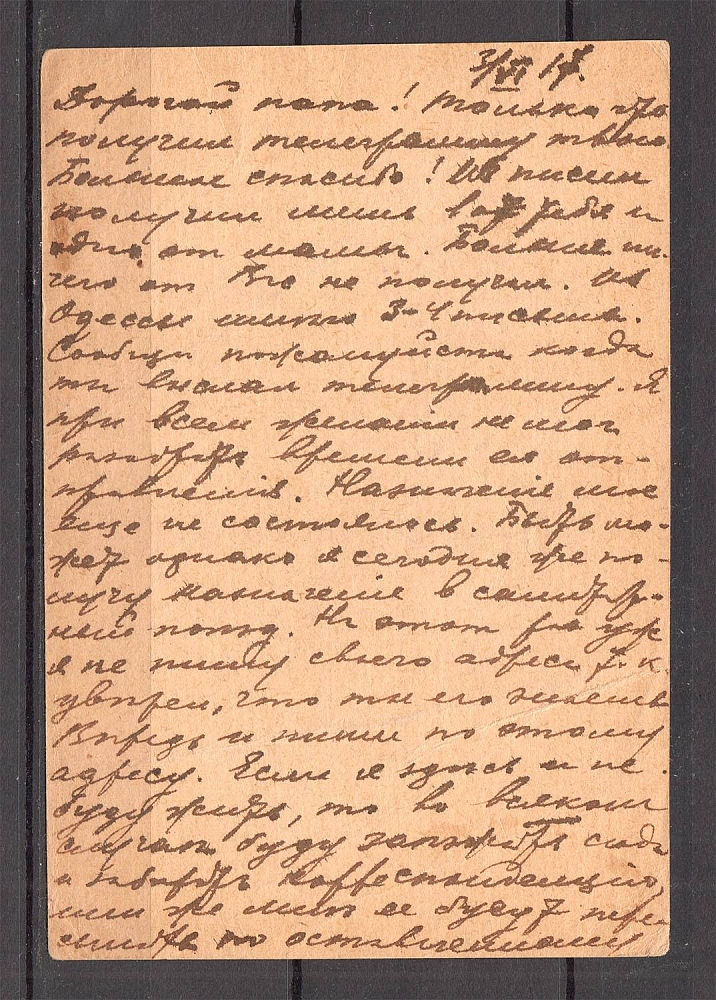 3/VI 17.
Дорогой папа! Только что
получил телеграмму твою.
Большое спасибо! Из писем
получил лишь два тебя и
одно от мамы. Больше ни-
чего от Вас не получил. Из
Одессы имею 3-4 письма.
Сообщи пожалуйста когда
ты выслал телеграмму. Я
при всем желании не мог
разобрать времени ея от-
правления. Назначение мое
еще не состоялось. Быть мо-
жет однако я сегодня же по-
лучу назначение в санитар-
ный поезд. На этот раз уж
я не пишу своего адреса т. к.
уверен, что ты его знаешь
Впредь и пиши по этому
адресу. Если я здесь и не
буду жить, то во всяком
случае буду заезжать сюда
и забирать корреспонденцию,
или же мне ее будут пере-
сылать по оставленному